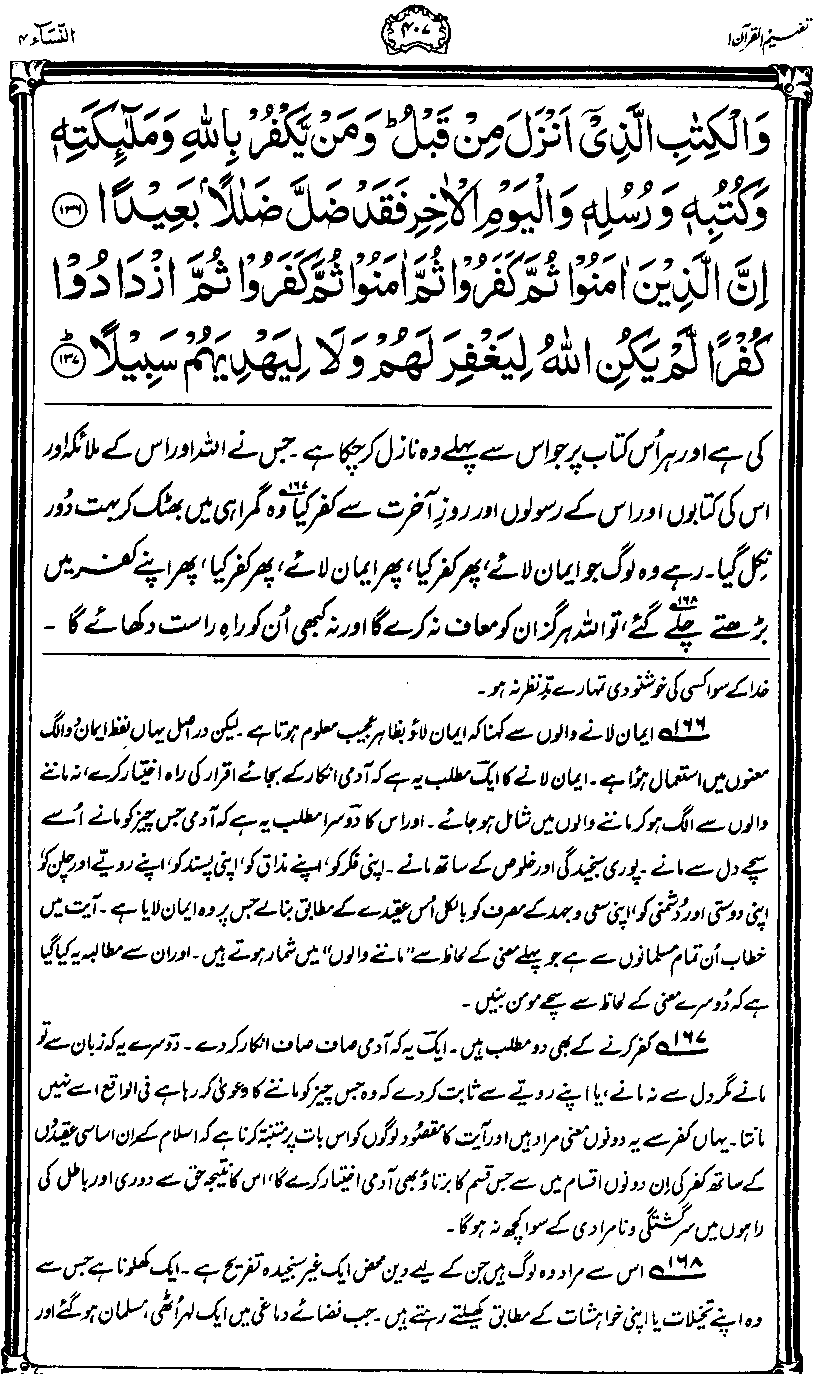 تفہیم القرآن ۱
۴۰۷
النساء ۴
وَالْكِتٰبِ الَّذِیْۤ اَنْزَلَ مِنْ قَبْلُ ؕ وَمَنْ یَّكْفُرْ بِاللّٰهِ وَمَلٰٓئِكَتِهٖ
وَكُتُبِهٖ وَرُسُلِهٖ وَالْیَوْمِ الْاٰخِرِ فَقَدْ ضَلَّ ضَلٰلًاۢ بَعِیْدًا ﴿۱۳۶﴾
اِنَّ الَّذِیْنَ اٰمَنُوْا ثُمَّ كَفَرُوْا ثُمَّ اٰمَنُوْا ثُمَّ كَفَرُوْا ثُمَّ ازْدَادُوْا
كُفْرًا لَّمْ یَكُنِ اللّٰهُ لِیَغْفِرَ لَهُمْ وَلَا لِیَهْدِیَهُمْ سَبِیْلًا ﴿۱۳۷﴾ؕ
کی ہے اور ہر اُس کتاب پر جو اس سے پہلے وہ نازل کر چکا ہے۔ جس نے اللہ اور اس کے ملائکہ اور
اس کی کتابوں اور اس کے رسولوں اور روزِ آخرت سے کفر کیا۱۶۷ وہ گمراہی میں بھٹک کر بہت دُور
نکل گیا۔ رہے وہ لوگ جو ایمان لائے، پھر کفر کیا، پھر ایمان لائے، پھر کفر کیا، پھر اپنے کفر میں
بڑھتے چلے گئے۱۶۸، تو اللہ ہرگز ان کو معاف نہ کرے گا اور نہ کبھی اُن کو راہِ راست دکھائے گا۔
خدا کے سوا کسی کی خوشنودی تمہارے مدِّنظر نہ ہو۔
۱۶۶؎ ایمان لانے والوں سے کہنا کہ ایمان لاؤ بظاہر عجیب معلوم ہوتا ہے۔ لیکن دراصل یہاں لفظ ایمان دو الگ
معنوں میں استعمال ہؤا ہے۔ ایمان لانے کا ایک مطلب یہ ہے کہ آدمی انکار کے بجائے اقرار کی راہ اختیار کرے، نہ ماننے
والوں سے الگ ہو کر ماننے والوں میں شامل ہو جائے۔ اور اس کا دوسرا مطلب یہ ہے کہ آدمی جس چیز کو مانے اُسے
سچے دل سے مانے۔ پوری سنجیدگی اور خلوص کے ساتھ مانے۔ اپنی فکر کو، اپنے مذاق کو، اپنی پسند کو، اپنے رویّے اور چلن کو،
اپنی دوستی اور دُشمنی کو، اپنی سعی و جہد کے مصرف کو بالکل اُس عقیدے کے مطابق بنا لے جس پر وہ ایمان لایا ہے۔ آیت میں
خطاب اُن تمام مسلمانوں سے ہے جو پہلے معنی کے لحاظ سے ”ماننے والوں“ میں شمار ہوتے ہیں۔ اور ان سے مطالبہ یہ کیا گیا
ہے کہ دُوسرے معنی کے لحاظ سے سچے مومن بنیں۔
۱۶۷؎ کفر کرنے کے بھی دو مطلب ہیں۔ ایک یہ کہ آدمی صاف صاف انکار کر دے۔ دوسرے یہ کہ زبان سے تو
مانے مگر دل سے نہ مانے، یا اپنے رویّے سے ثابت کر دے کہ وہ جس چیز کو ماننے کا دعویٰ کر رہا ہے فی الواقع اسے نہیں
مانتا۔ یہاں کفر سے یہ دونوں معنی مراد ہیں اور آیت کا مقصُود لوگوں کو اس بات پر متنبّہ کرنا ہے کہ اسلام کے ان اساسی عقیدوں
کے ساتھ کفر کی اِن دونوں اقسام میں سے جس قسم کا برتاؤ بھی آدمی اختیار کرے گا، اس کا نتیجہ حق سے دوری اور باطل کی
راہوں میں سرگشتگی و نامرادی کے سوا کچھ نہ ہو گا۔
۱۶۸؎ اس سے مراد وہ لوگ ہیں جن کے لیے دین محض ایک غیر سنجیدہ تفریح ہے۔ ایک کھلونا ہے جس سے
وہ اپنے تخیلات یا اپنی خواہشات کے مطابق کھیلتے رہتے ہیں۔ جب فضائے دماغی میں ایک لہر اُٹھی، مسلمان ہو گئے اور